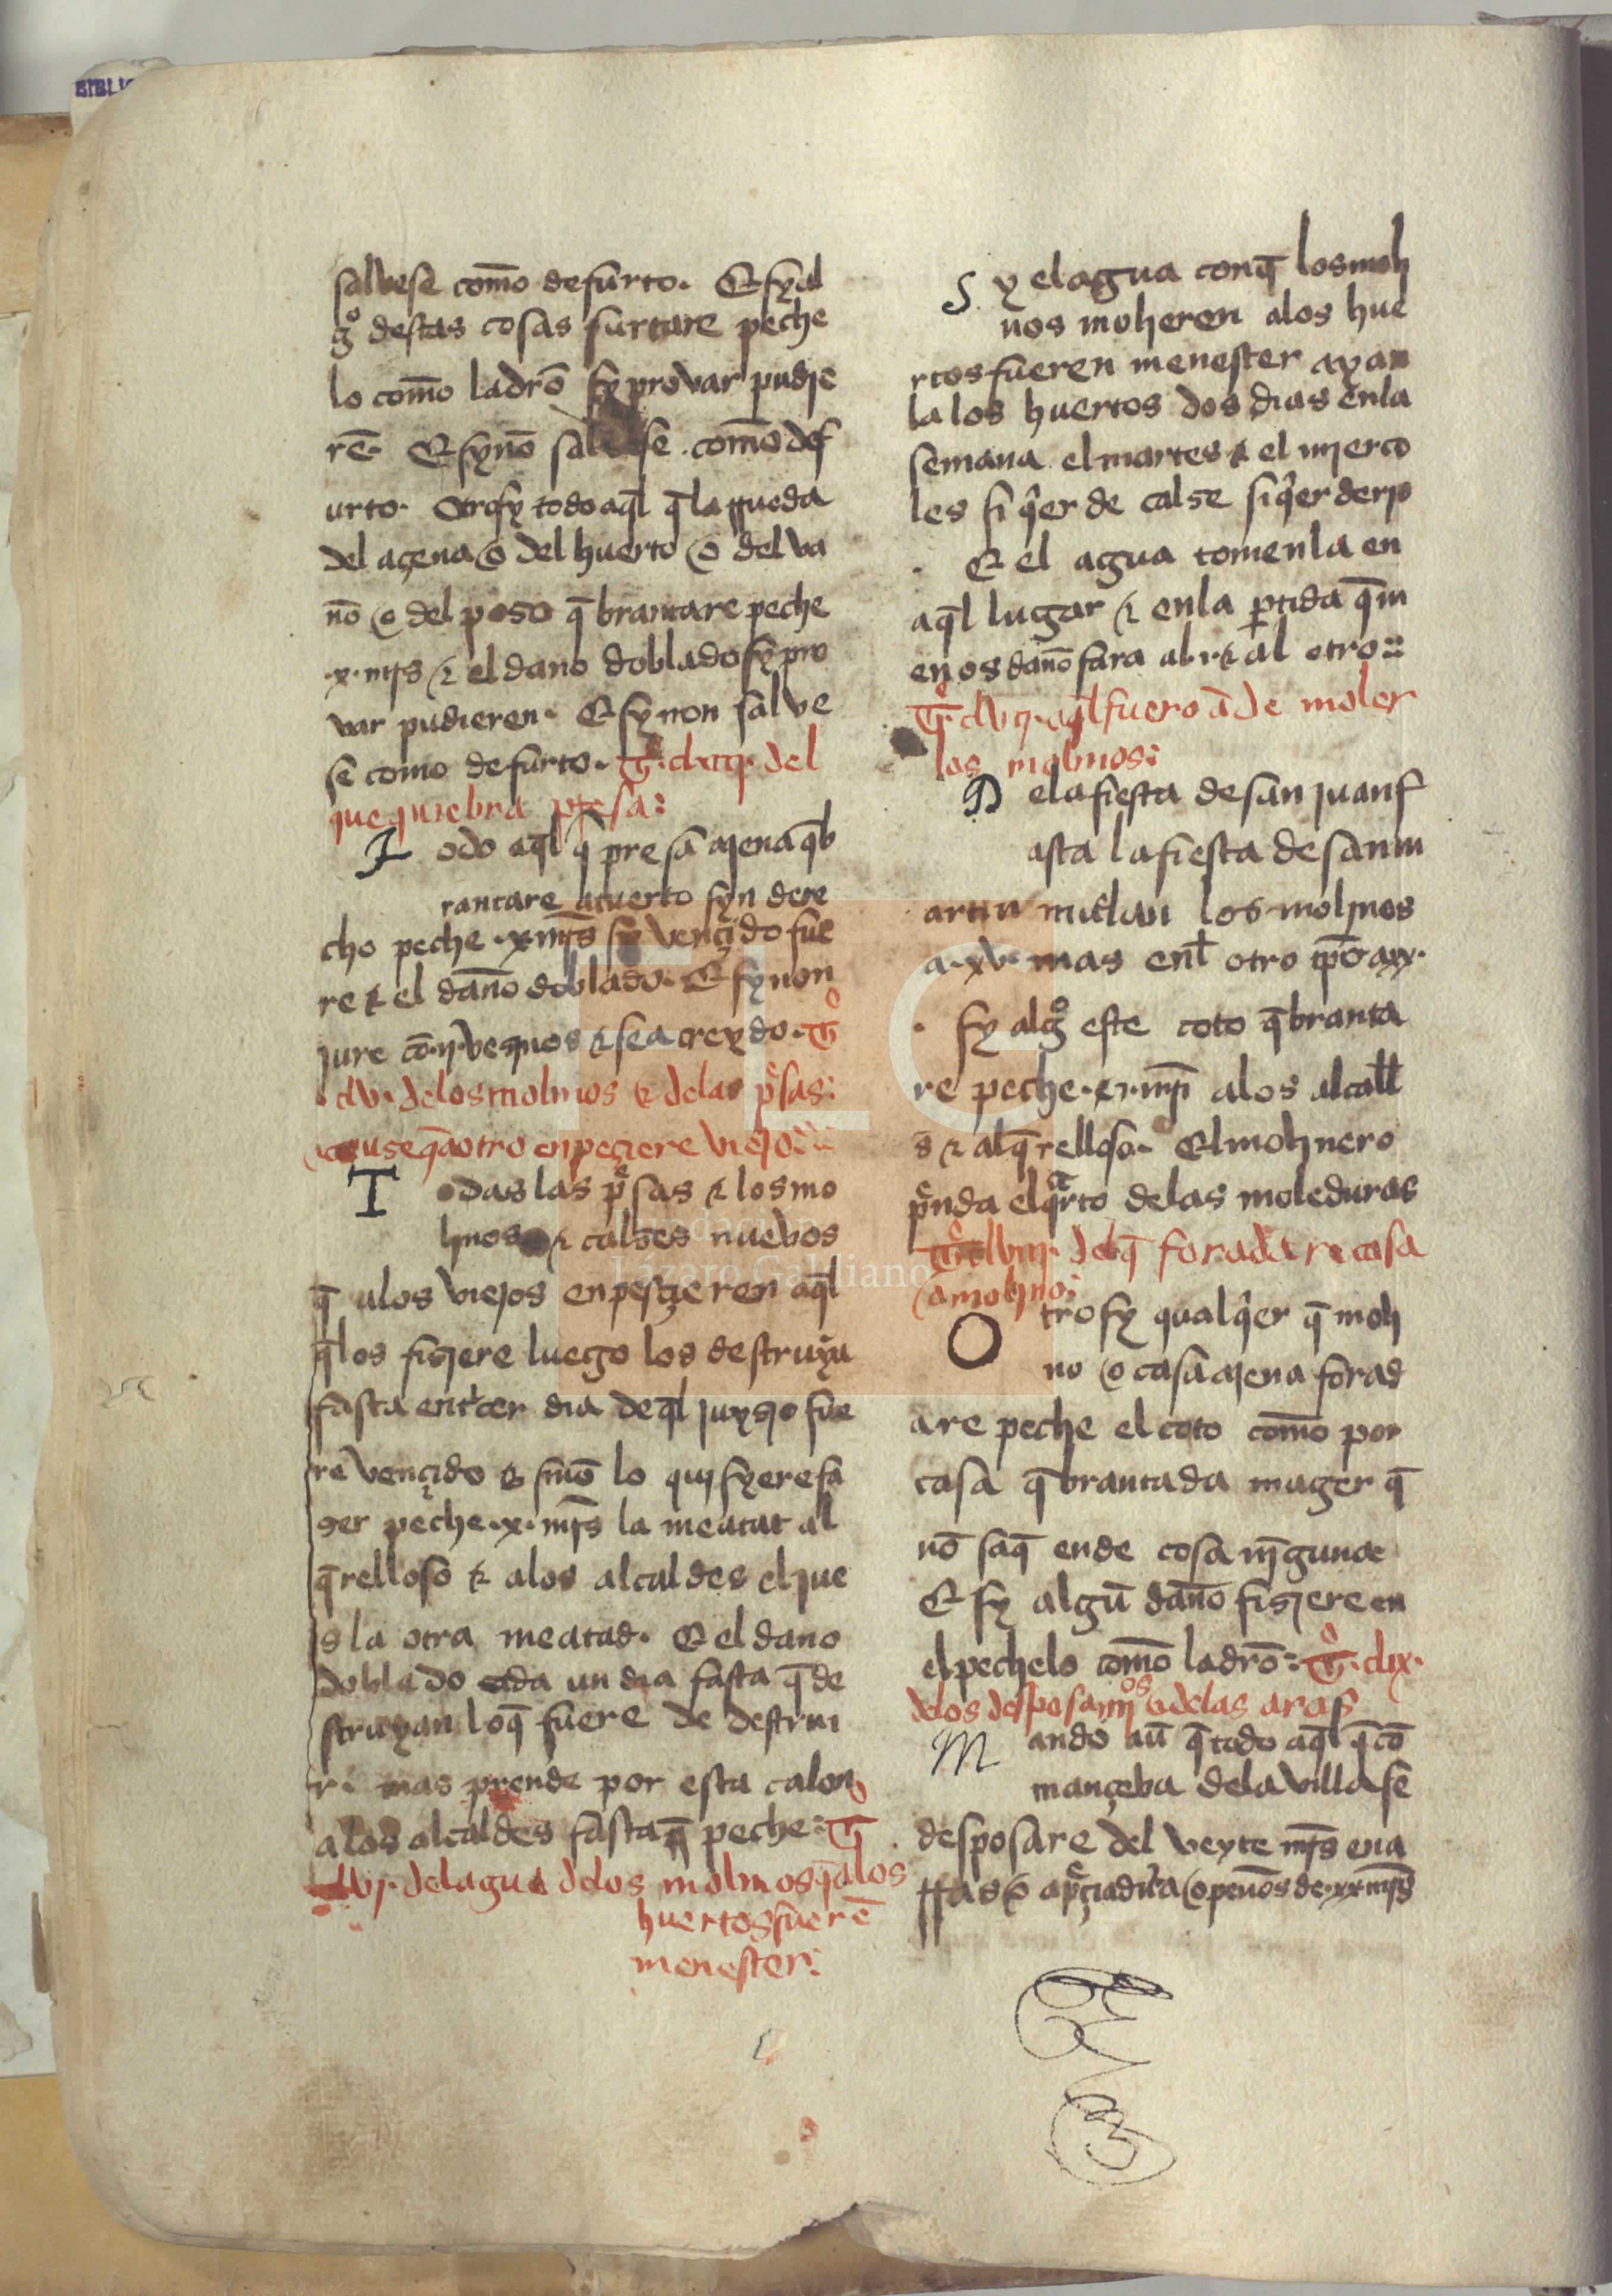 BIBLIO
salvese com̄o defurto. E sy al
gͦ destas cosas furtare peche
lo com̄o ladrō sy provar pudie
rē. E sy nō salvese com̄o def
urto. Otrosy todo aq̄l q̄ la rrueda
del açena o del huerto o del va
ño o del poso q̄ brantare peche
.x. mr̄s & el dano doblado sy pro
var pudieren. E sy non salve
se como de furto. del
que quiebra presa:
T odo aq̄l q̄ presa ajena q̄b
rantare atuerto syn dere
cho peche .x. mr̄s sy vençido fue
re & el dan̄o doblado. E sy non
jure cō .ij. vesinos & sea creydo. Tͦ
.clv. delos molinos & delas pͤsas:
q̄ a otro enpeçiere viejo
T odas las pͤsas & los mo
linos & calses nuevos
q̄ alos viejos enpesçieren aq̄l
q̄ los fisiere luego los destruya
fasta enter̄cer dia de q̄l juysio fue
re vençido & sinō lo quisyere fa
ser peche .x. mr̄s la meatat al
q̄relloso & alos alcaldes el jue
s la otra meatad. E el dano
doblado cada un dia fasta q̄ de
struyan lo q̄ fuere de destrui
r. mas prende por esta calon
alos alcaldes fasta q̄ peche: Tͦ
clvj. del agua delos molinos q̄ alos
huertos fuerē
menester:
S y el agua con q̄ los moli
nos molieren alos hue
rtos fueren menester ayan
la los huertos dos dias enla
semana el martes & el mierco
les si q̄er de calse siq̄er de rio
. E el agua tomenla en
aq̄l lugar & enla ꝑtida q̄ m
enos dan̄o fara al .i. & al otro
Tͦ. clvij. aq̄l fuero ā de moler
los molinos:
D ela fiesta de san juan f
asta la fiesta de san m
artin muelan los molinos
a .xv. mas enl̄ otro tp̄o a xx.
. sy algͦ este coto q̄branta
re peche .i. mr̄ alos alcall
s & al q̄relloso. El molinero
pͤnda el qͣrto delas moleduras
Tͦ clviij. del q̄ foradare casa
o molino:
O trosy qualq̄er q̄ moli
no o casa ajena forad
are peche el coto com̄o por
casa q̄brantada mager q̄
nō saq̄ ende cosa nīguna
E sy algū dan̄o fisiere en
el pechelo com̄o ladrō: Tͦ. clix.
delos desposamiͦˢ & delas aras
M ando aū q̄ todo aq̄l q̄ cō
mançeba dela villa se
desposare del veyte mr̄s en a
rras o apͤçiadura o pen̄os de .xx. mr̄s
FLG
Fundación
Lázaro Galdiano